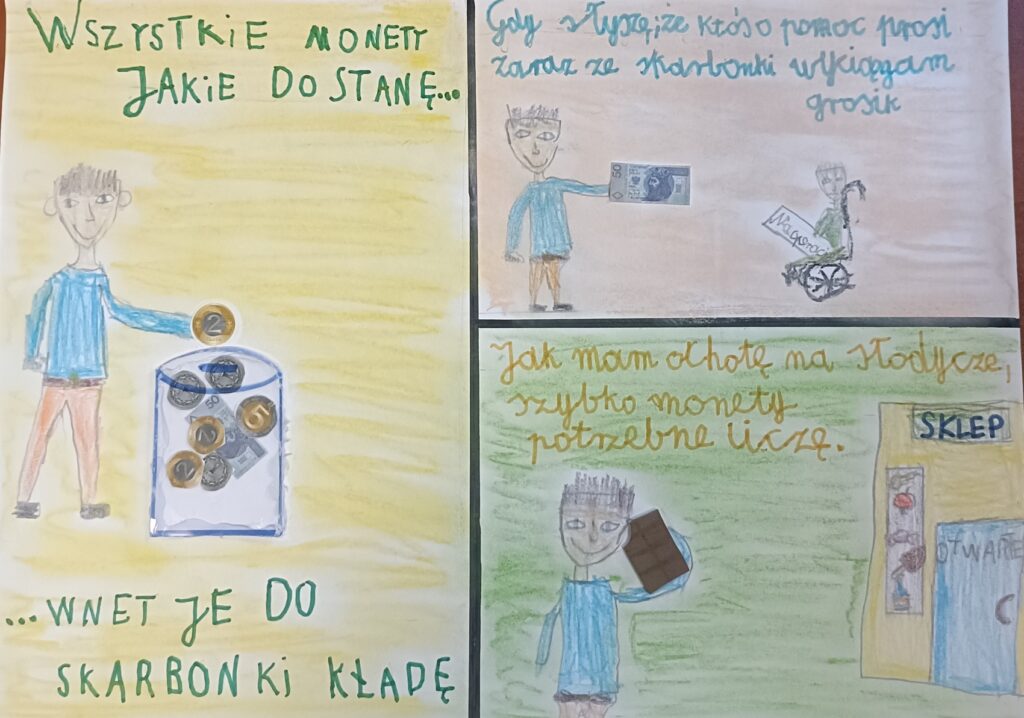 WSZYSTKIE MONETY
JAKIE DOSTANĘ...
2
5
2
2
50
...WNET JE DO
SKARBONKI KŁADĘ
Gdy słyszę, że ktoś o pomoc prosi
zaraz ze skarbonki wyciągam
grosik
50
Jak mam ochotę na słodycze,
szybko monety
potrzebne liczę.
SKLEP
OTWARTE